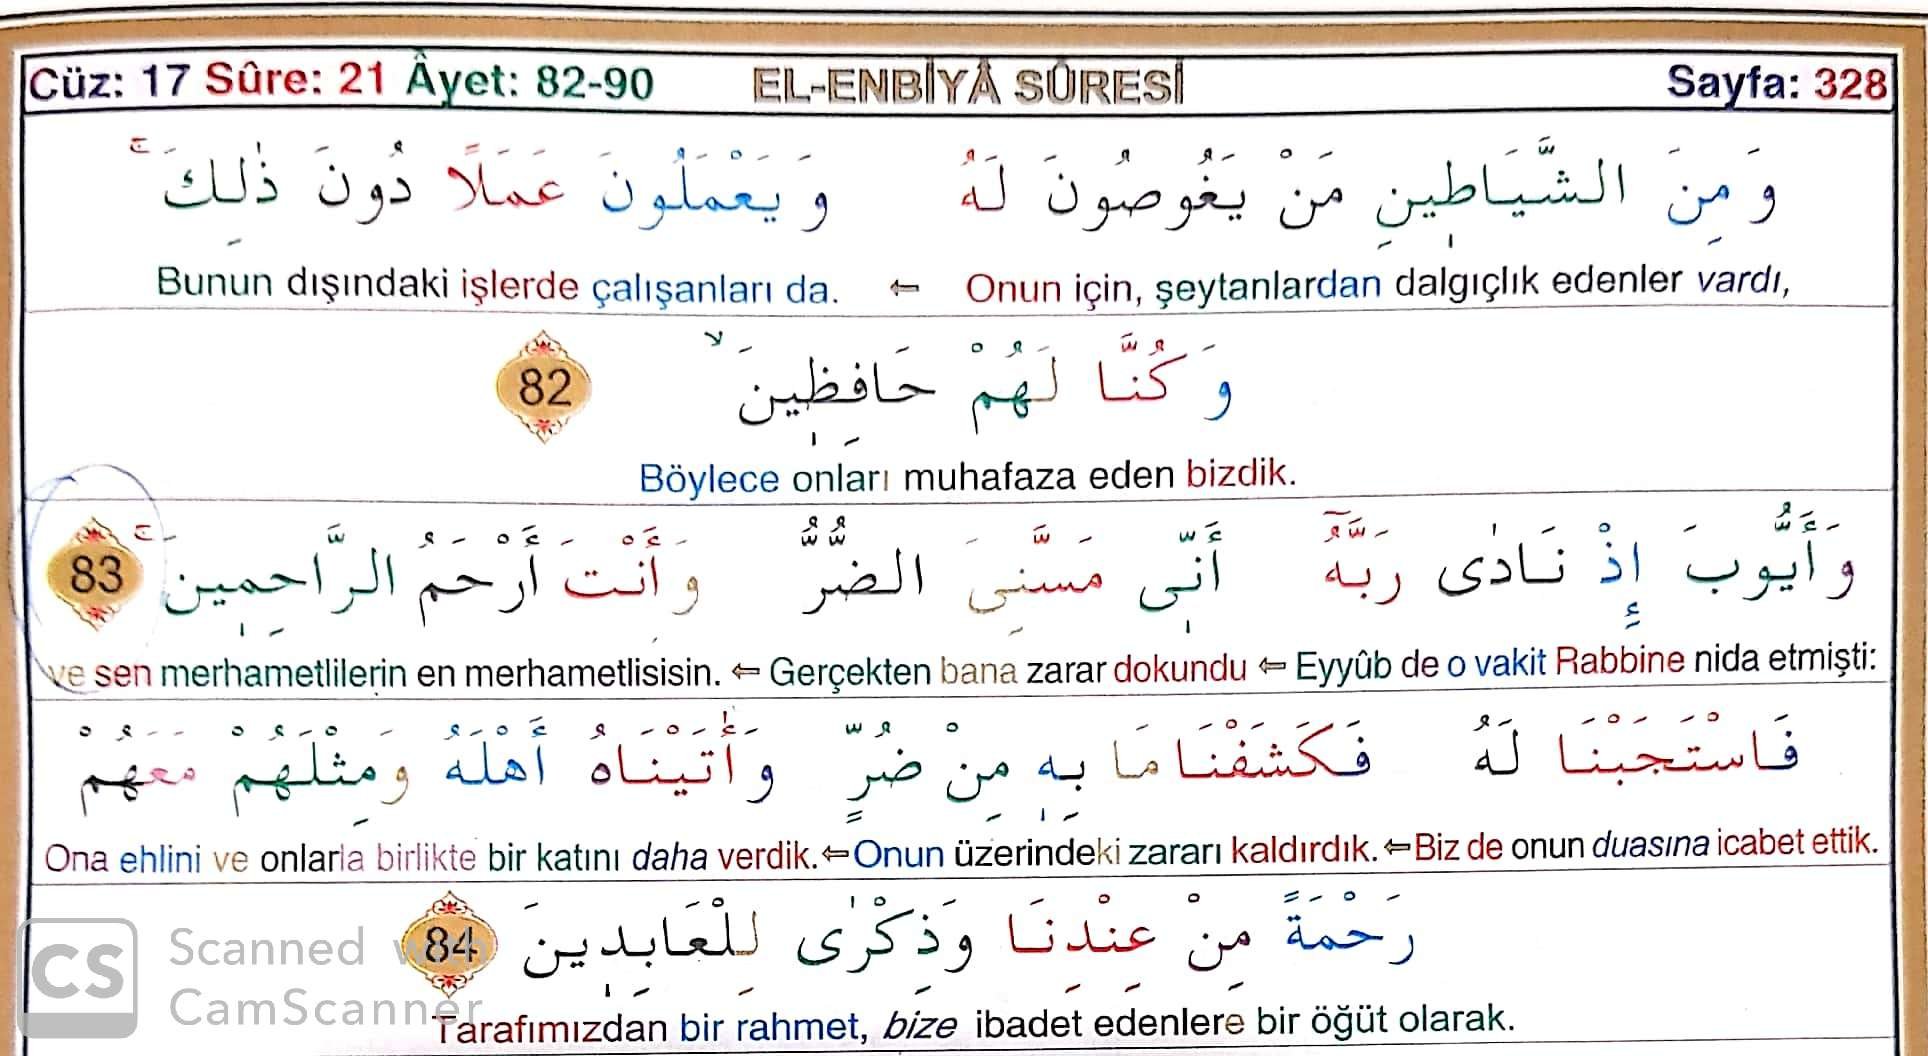 Cüz: 17 Sûre: 21 Âyet: 82-90 EL-ENBİYÂ SÛRESİ Sayfa: 328
وَ مِنَ الشَّيَاطٖينِ مَنْ يَغُوصُونَ لَهُ وَ يَعْمَلُونَ عَمَلًا دُونَ ذٰلِكَۚ
Onun için, şeytanlardan dalgıçlık edenler vardı, ⇐ Bunun dışındaki işlerde çalışanları da.
وَ كُنَّا لَهُمْ حَافِظٖينَۙ 82
Böylece onları muhafaza eden bizdik.
وَ أَيُّوبَ إِذْ نَادٰى رَبَّهُٓ أَنّٖى مَسَّنِىَ الضُّرُّ وَ أَنْتَ أَرْحَمُ الرَّاحِمٖينَۚ 83
Eyyûb de o vakit Rabbine nida etmişti: ⇐ Gerçekten bana zarar dokundu ⇐ ve sen merhametlilerin en merhametlisisin.
فَاسْتَجَبْنَا لَهُ فَكَشَفْنَا مَا بِهٖ مِنْ ضُرٍّ وَ أٰتَيْنَاهُ أَهْلَهُ وَ مِثْلَهُمْ مَعَهُمْ
Biz de onun duasına icabet ettik. ⇐ Onun üzerindeki zararı kaldırdık. ⇐ Ona ehlini ve onlarla birlikte bir katını daha verdik.
رَحْمَةً مِنْ عِنْدِنَا وَ ذِكْرٰى لِلْعَابِدٖينَ 84
Tarafımızdan bir rahmet, bize ibadet edenlere bir öğüt olarak.
CS Scanned with
CamScanner